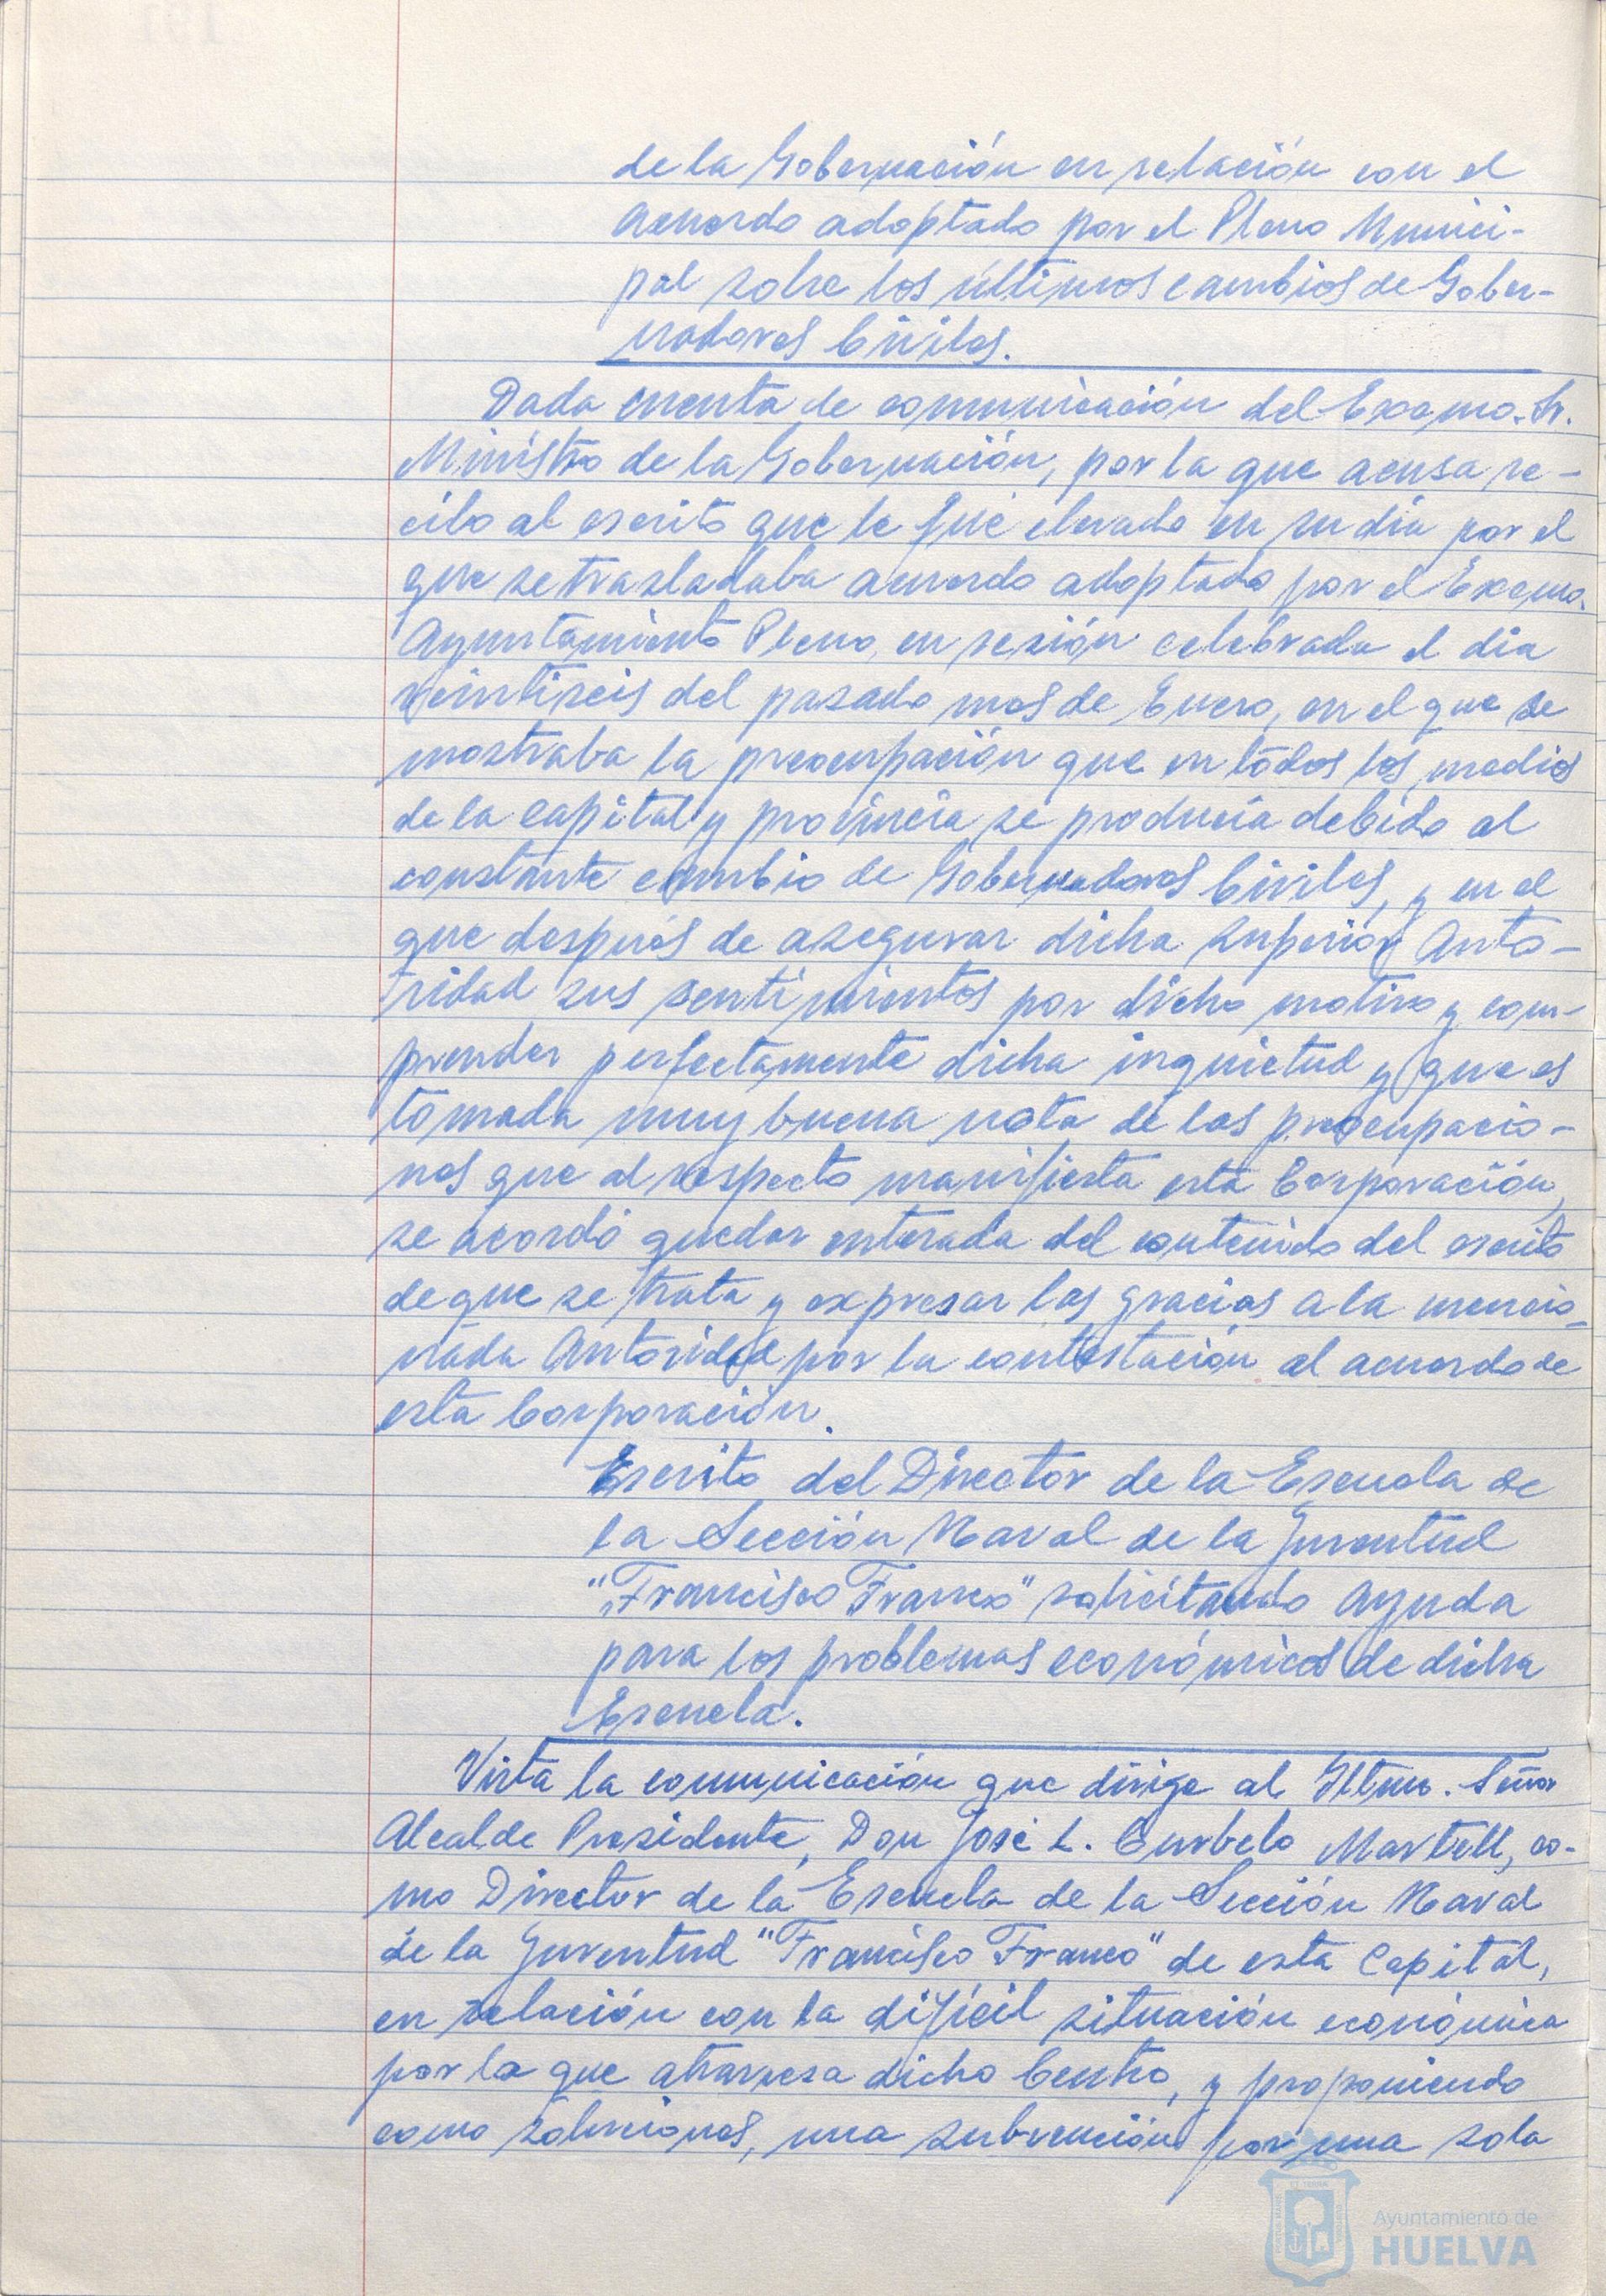 de la Gobernación en relación con el
acuerdo adoptado por el Pleno Munici-
pal sobre los últimos cambios de Gober-
nadores Civiles.
Dada cuenta de comunicación del Excmo. Sr.
Ministro de la Gobernación, por la que acusa re-
cibo al escrito que le fué elevado en su dia por el
que se trasladaba acuerdo adoptado por el Excmo.
Ayuntamiento Pleno, en sesión celebrada el dia
veintiseis del pasado mes de Enero, en el que se
mostraba la preocupación que en todos los medios
de la capital y provincia se producia debido al
constante cambio de Gobernadores Civiles, y en el
que después de asegurar dicha superior Auto-
ridad sus sentimientos por dicho motivo y com-
prender perfectamente dicha inquietud y que es
tomada muy buena nota de las preocupacio-
nes que al respecto manifiesta esta Corporación,
se acordó quedar enterada del contenido del escrito
de que se trata y expresar las gracias a la mencio-
nada Autoridad por la contestación al acuerdo de
esta Corporación.
Escrito del Director de la Escuela de
la Sección Naval de la Juventud
"Francisco Franco" solicitando ayuda
para los problemas económicos de dicha
Escuela.
Vista la comunicación que dirige al Iltmo. Señor
Alcalde Presidente, Don José L. Curbelo Martell, co-
mo Director de la Escuela de la Sección Naval
de la Juventud "Francisco Franco" de esta Capital,
en relación con la difícil situación económica
por la que atraviesa dicho Centro, y proponiendo
como soluciones, una subvención por una sola
Ayuntamiento de
HUELVA